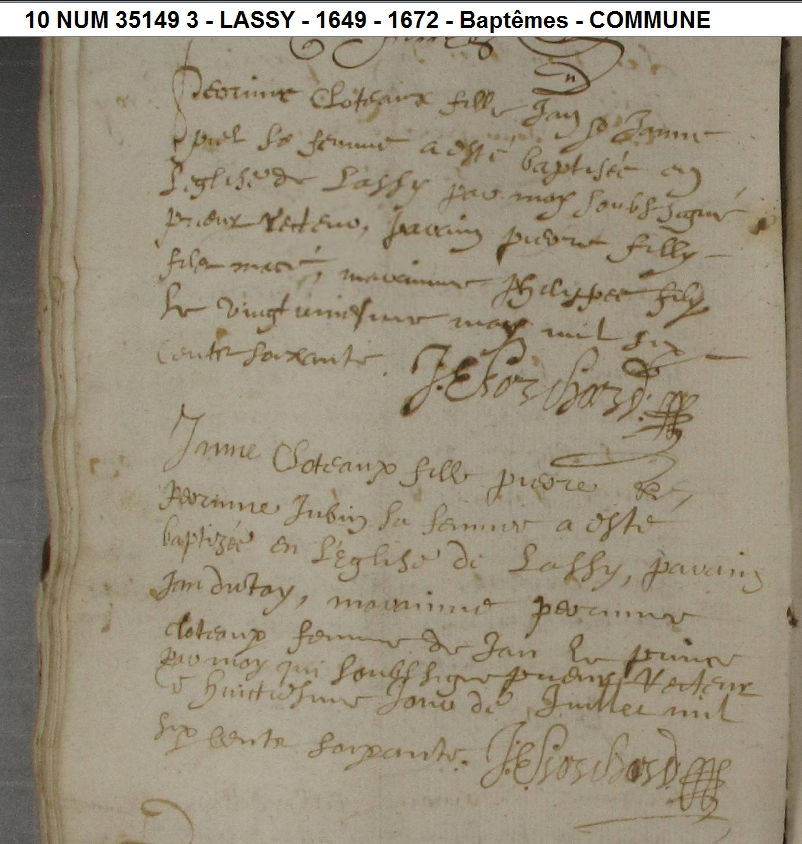 10 NUM 35149 3 - LASSY - 1649 - 1672 - Baptêmes - COMMUNE
Perrinne Cloteaux fille Jan & Janne
piel sa femme a esté baptisée en
l'eglise de Lassy par moy soubssigné
prieur Recteur, parain pierre filly
fils macé, marainne Philippee filly
le vingt uniesme may mil six
cents soixante. J. E Porchard
Janne Cloteaux fille pierre &,
Perrinne Jubin sa femme a esté
baptizée en l'eglise de Lassy, parain
Jan dutay, marainne perrinne
cloteaux femme de Jan le prince
par moy qui soubssigne prieur Recteur
Ce huictiesme Jour de Juillet mil
six cents soixante. J. E Porchard